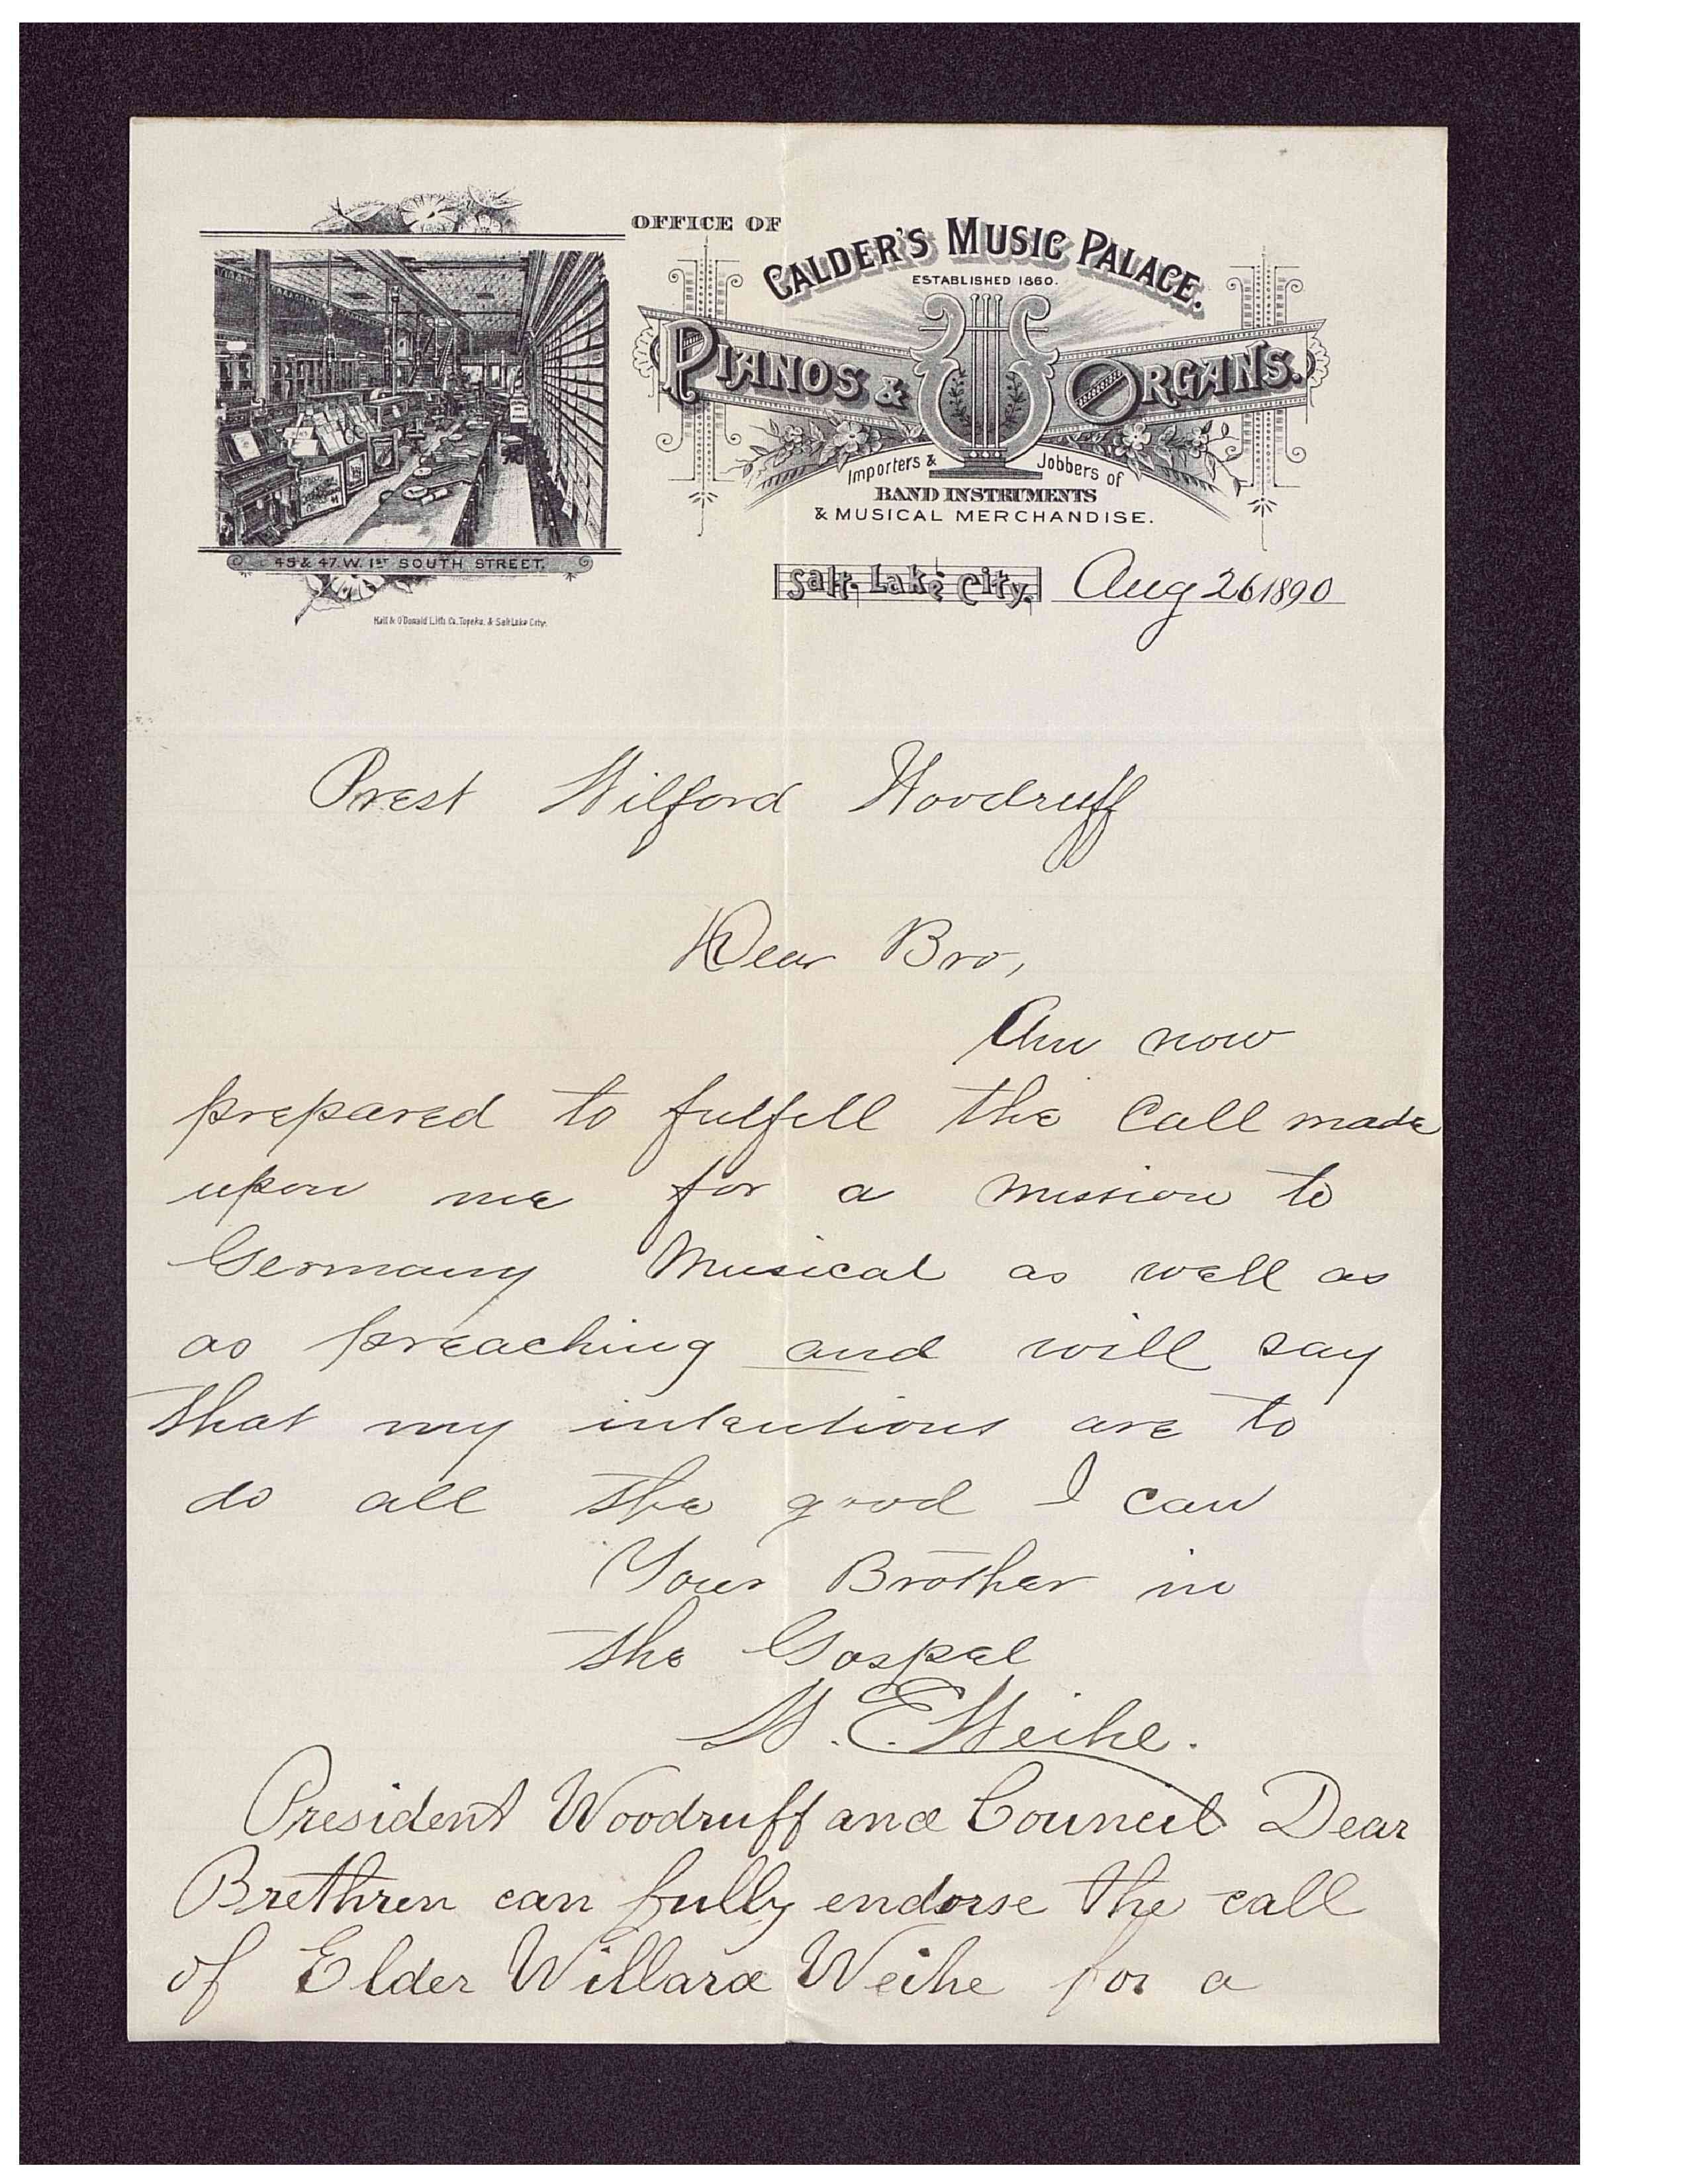 OFFICE OF
CALDER'S MUSIC PALACE.
ESTABLISHED 1860.
PIANOS & ORGANS.
Importers & Jobbers of
BAND INSTRUMENTS
& MUSICAL MERCHANDISE.
45 & 47. W. 1ST SOUTH STREET.
Hall & O'Donald Lith. Co. Topeka, & Salt Lake City.
Salt Lake City, Aug 26 1890
Prest Wilford Woodruff
Dear Bro,
Am now
prepared to fulfill the Call made
upon me for a mission to
Germany Musical as well as
as preaching and will say
that my intentions are to
do all the good I can
Your Brother in
the Gospel
W. E. Weihe.
President Woodruff and Council Dear
Brethren can fully endorse the call
of Elder Willard Weihe for a